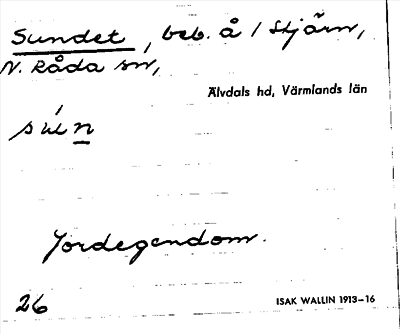 Sundet, beb. å 1 Stjärn,
N. Råda sn,
Älvdals hd, Värmlands län
Jordegendom.
26
ISAK WALLIN 1913–16